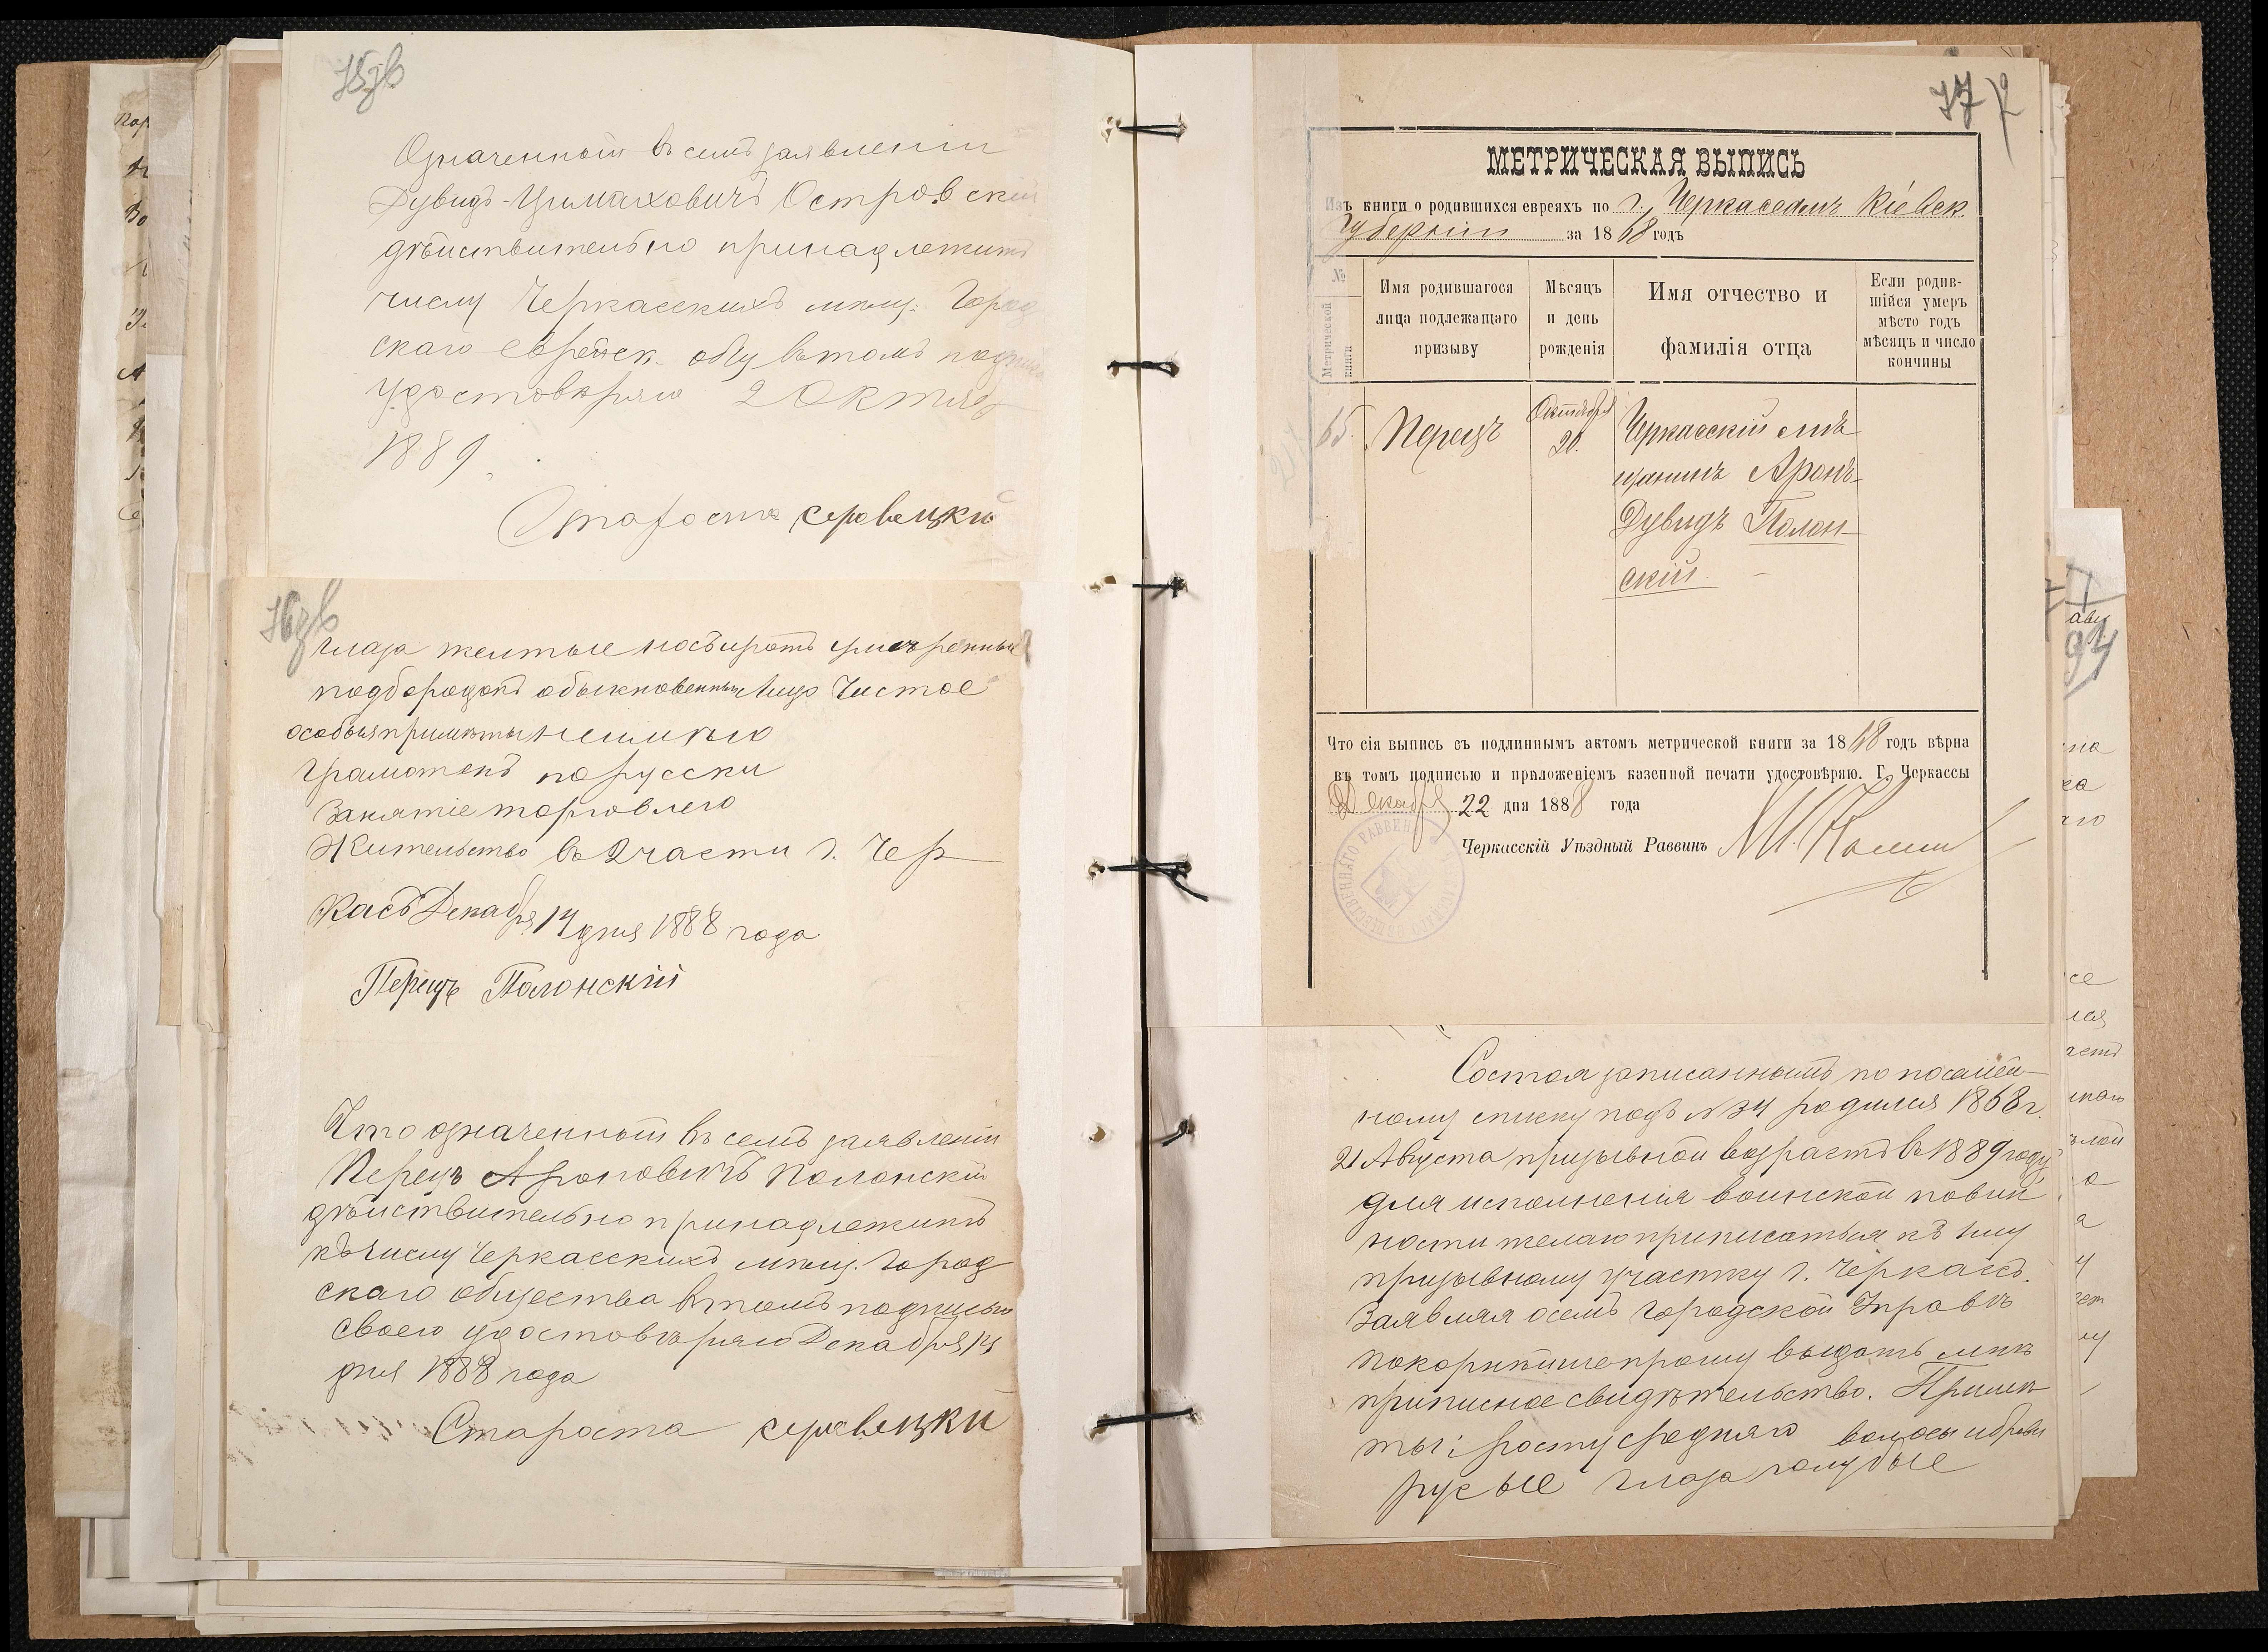 Означенный въ семъ заявленіи
Дувидъ Островскій
дѣйствительно принадлежитъ
числу Черкасскихъ мѣщ. Город
скаго еврейск. общ. въ томъ
удостовѣряю 2 Октяб
1889
Староста
глаза желтые носъ и ротъ умѣренные
подбородокъ обыкновенный лицо чистое
особыя примѣты не имѣю
Грамотенъ по русски
Занятіе торговлею
Жительство въ 2 части г. Чер
касъ Декабря 14 дня 1888 года
Перецъ Полонскій
Что означенный въ семъ заявленіи
Перецъ Ароновичъ Полонскій
дѣйствительно принадлежитъ
къ числу Черкасскихъ мѣщ. Город
скаго общества въ томъ подписью
своею удостовѣряю Декабря 14
дня 1888 года
Староста
77
МЕТРИЧЕСКАЯ ВЫПИСЬ
Изъ книги о родившихся евреяхъ по г. Черкассамъ Кіевск.
Губерніи за 1868 годъ
№ Метрической книги
Имя родившагося лица подлежащаго призыву
Мѣсяцъ и день рожденія
Имя отчество и фамилія отца
Если родив-
шійся умеръ
мѣсто годъ
мѣсяцъ и число
кончины
65 Перецъ Октября 20. Черкасскій мѣ
щанинъ Аронъ-
Дувидъ Полон-
скій.
Что сія выпись съ подлиннымъ актомъ метрической книги за 1868 годъ вѣрна
въ томъ подписью и приложеніемъ казенной печати удостовѣряю. Г. Черкассы
Декабря 22 дня 1888 года
Черкасскій Уѣздный Раввинъ
Состоя записаннымъ по посемей-
ному списку подъ № 34 родился 1868 г.
21 Августа призывной возрастъ въ 1889 году
для исполненія воинской повин
ности желаю приписаться къ 1му
призывному участку г. Черкасъ.
Заявляя о семъ Городской Управѣ
покорнѣйше прошу выдать мнѣ
приписное свидѣтельство. Примѣ
ты: росту средняго волосы и брови
русые глаза голубые